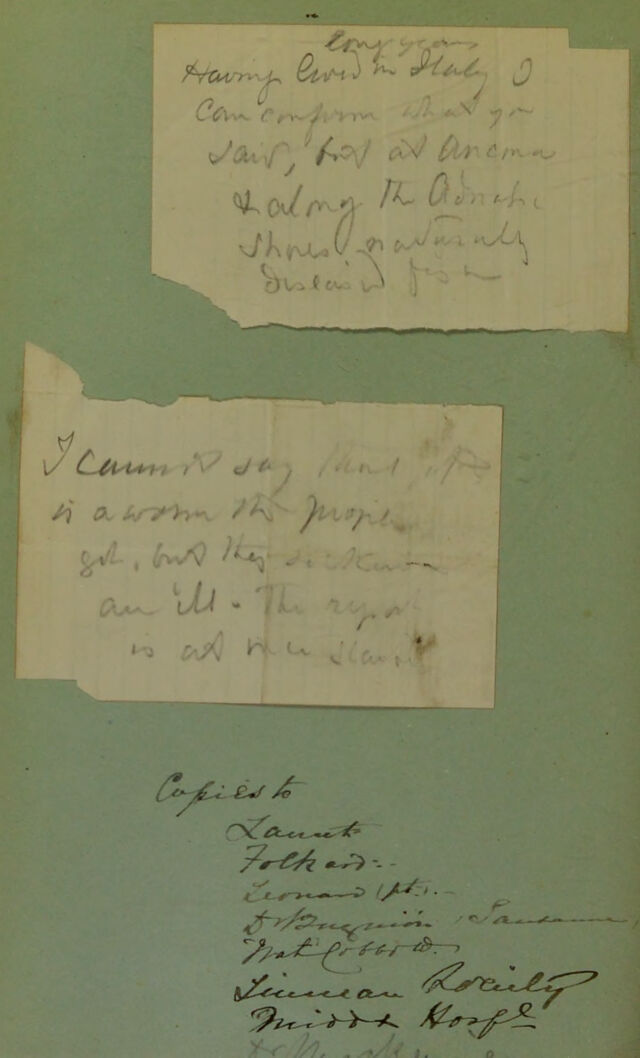 long years
Having lived in Italy I
can confirm what you
said, but at Ancona
& along the Adriatic
shores naturally
diseased fish
I cannot say that
is a worm the people
got, but they sicken
an ill. The report
is at once
Copies to
Lancet
Folkard
Leonard pt.
Dr Bugnion, Lausanne,
Nat Cobbold
Linnean Society
Middx Hospl